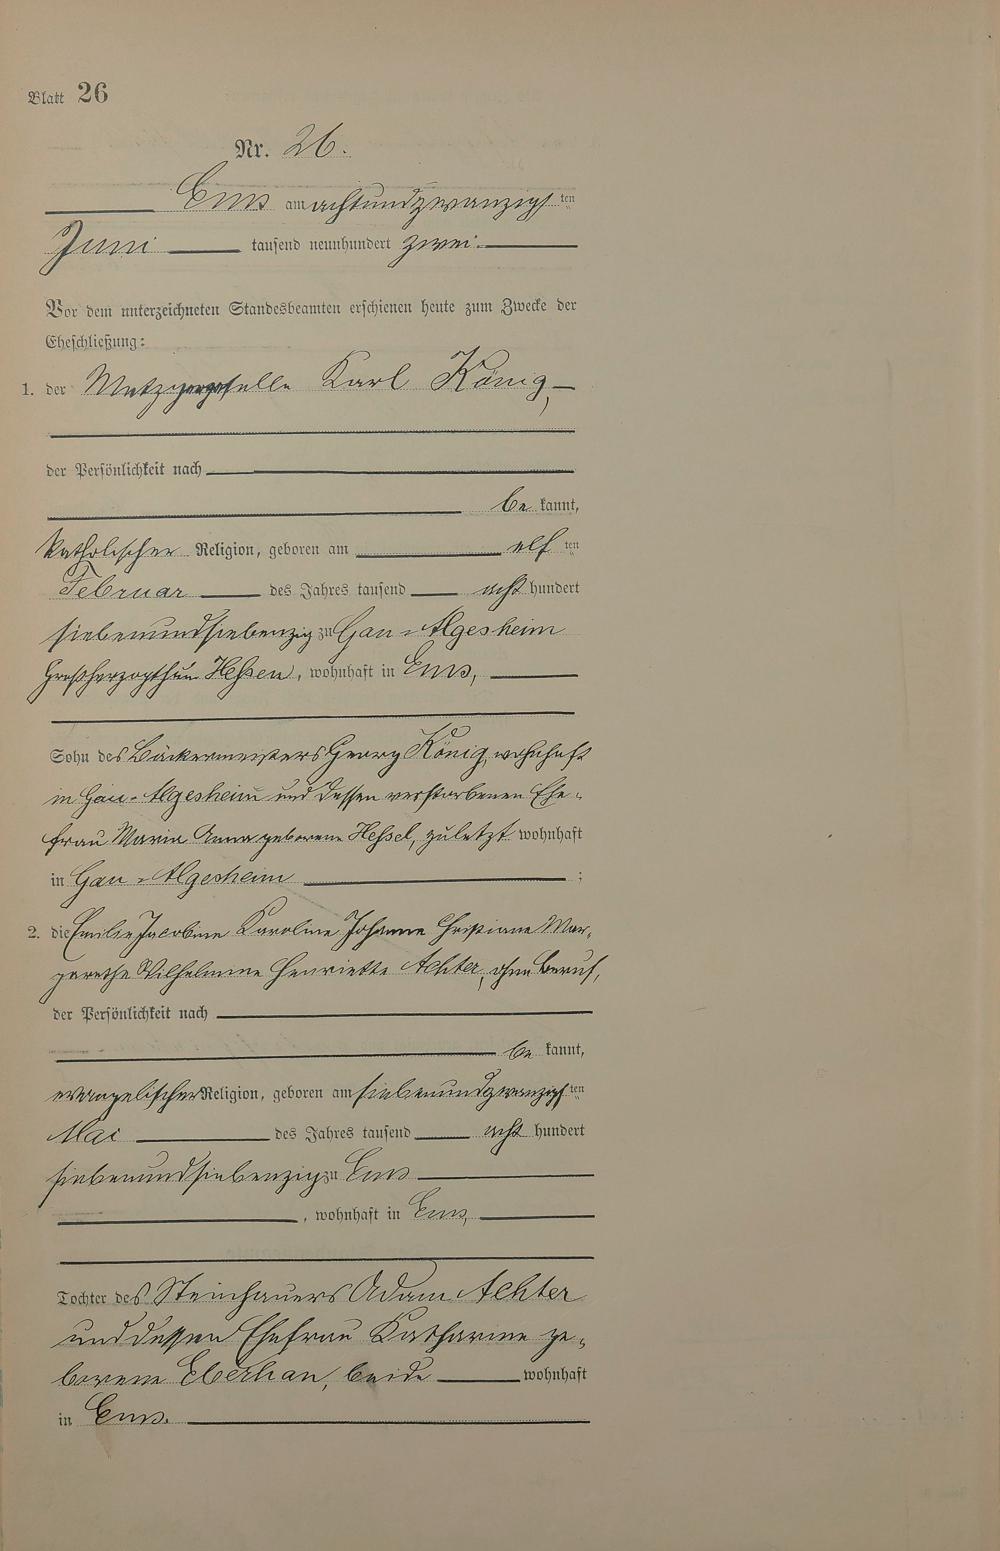 Blatt 26
Nr. 26.
Ems am achtundzwanzigsten
Juni tausend neunhundert zwei.
Vor dem unterzeichneten Standesbeamten erschienen heute zum Zwecke der
Eheschließung:
1. der Metzgergeselle Karl König,
der Persönlichkeit nach
be kannt,
katholischer Religion, geboren am elf ten
Februar des Jahres tausend acht hundert
siebenundsiebenzig zu Gau-Algesheim
Großherzogthum Hessen, wohnhaft in Ems,
Sohn des Bäckermeisters Georg König, wohnhaft
in Gau-Algesheim und dessen verstorbenen Ehe-
frau Maria Anna geborene Hessel, zuletzt wohnhaft
in Gau-Algesheim ;
2. die Emilie Jacobine Karoline Johanna Christiane Mar-
garethe Wilhelmine Henriette Achter, ohne Beruf,
der Persönlichkeit nach
be kannt,
evangelischer Religion, geboren am siebenundzwanzigsten
Mai des Jahres tausend acht hundert
siebenundsiebenzig zu Ems
, wohnhaft in Ems,
Tochter des Steinhauers Adam Achter
und dessen Ehefrau Katharine ge-
borene Eberhan, beide wohnhaft
in Ems.